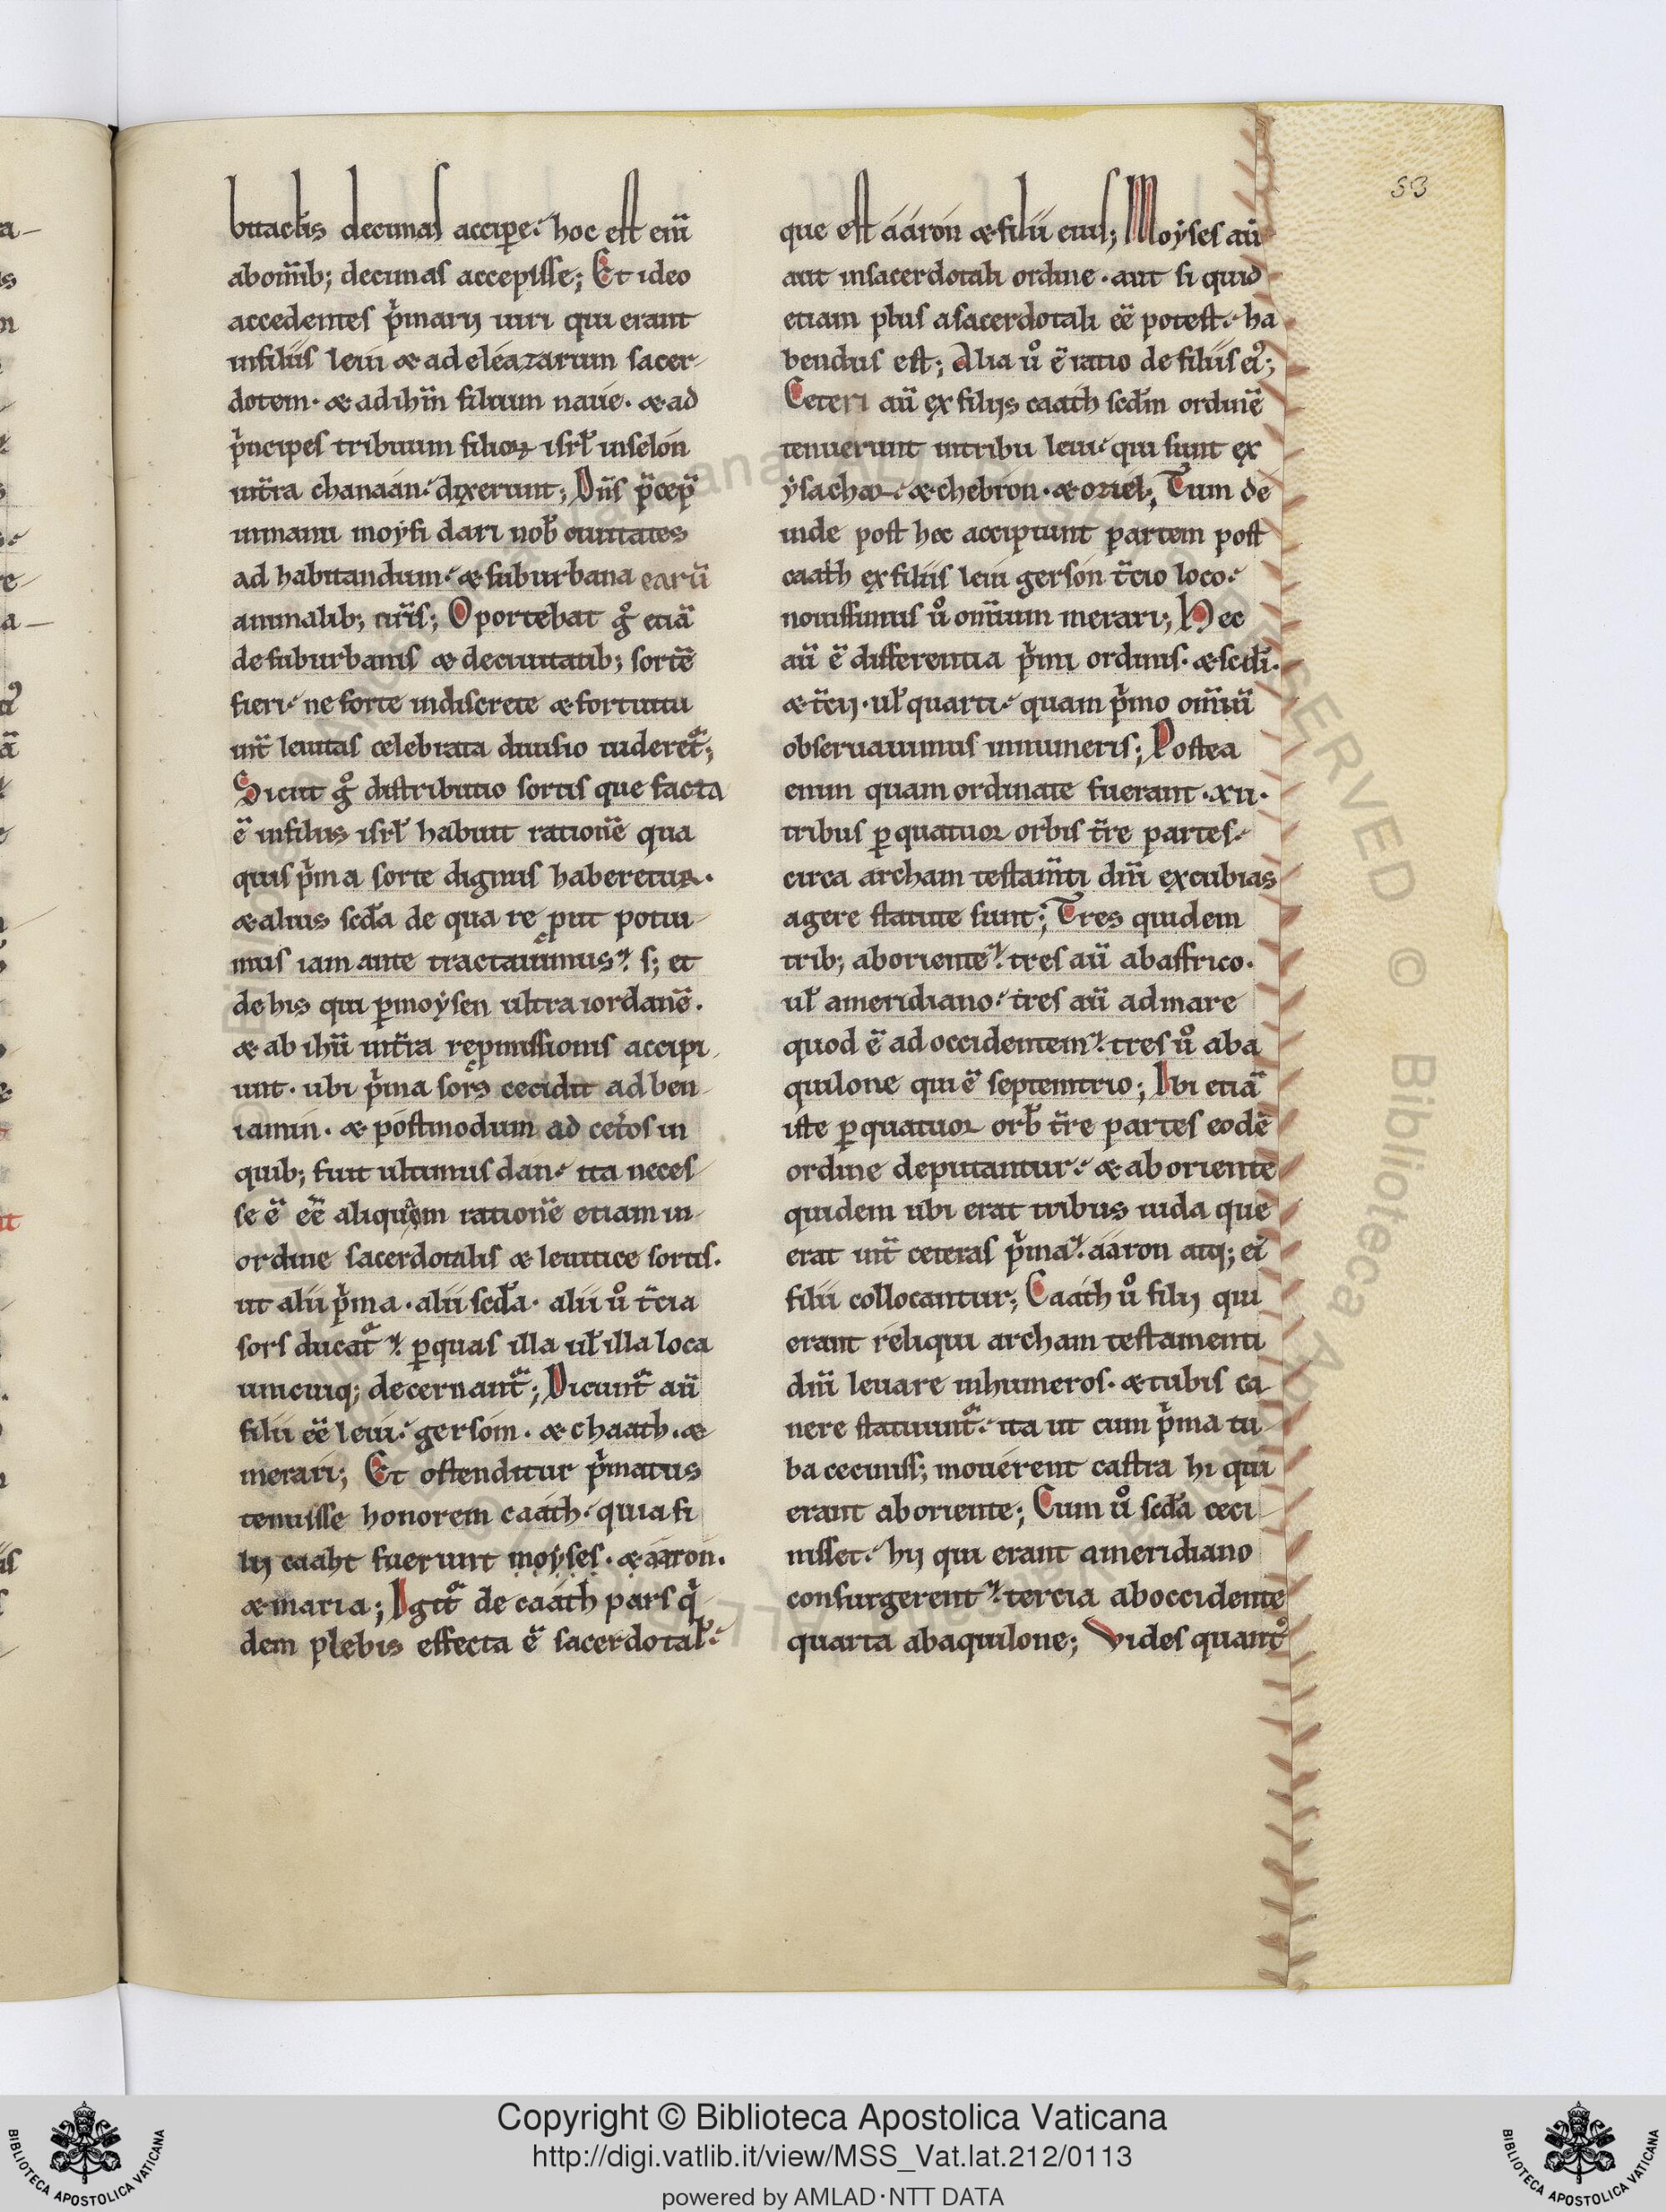 bitaclis decimas accipe. hoc est eni̅
ab om̅ib; decimas accepisse; Et ideo
accedentes p̍marij uiri qui erant
in filiis leui & ad eleazarum sacer-
dotem· & ad ih̅m filium naue· & ad
p̍ncipes tribuum filioꝝ isrl̅ in selon
in t̅ra chanaan. dixerunt; Dn̅s p̅cep̅
in manu moysi dari nob̅ ciuitates
ad habitandum. & suburbana earu̅
animalib; n̅ris; Oportebat g̊ etia̅
de suburbanis & de ciuitatib; sorte̅
fieri. ne forte indiscrete & fortuitu
int̅ leuitas celebrata diuisio uideret̅;
Sicut g̊ distributio sortis que facta
e̅ in filiis isrl̅ habuit ratione̅ qua
quis p̍ma sorte dignus haberetur·
& alius scd̅a de qua re put potui-
mus iam ante tractauimus. s; et
de his qui ꝑ moysen ultra iordane̅·
& ab ih̅u in t̅ra repmissionis accipi-
unt· ubi p̍ma sors cecidit ad ben-
iamin· & postmodum ad cet̅os in
quib; fuit ultimus dan. ita neces-
se e̅ ee̅ aliquam ratione̅ etiam in
ordine sacerdotalis & leuitice sortis·
ut alii p̍ma· alii scd̅a· alii ů t̅cia
sors ducat̅. ꝑ quas illa ul̅ illa loca
unicuiq; decernant̅; Dicunt̅ au̅
filii ee̅ leui. gerson· & chaath· &
merari; Et ostenditur p̍matus
tenuisse honorem caath. quia fi
lij caaht fuerunt moyses· & aaron·
& maria; Igit̅ de caath pars q̍
dem plebis effecta e̅ sacerdotal̅.
que est aaron & filii eius; Moyses au̅
aut in sacerdotali ordine· aut si quid
etiam plus a sacerdotali ee̅ potest. ha
bendus est; Alia ů e̅ ratio de filiis ei⁹;
Ceteri au̅ ex filijs caath scd̅m ordine̅
tenuerunt in tribu leui. qui sunt ex
ysachar. & chebron· & oziel; Tum de
inde post hec accipiunt partem post
caath ex filiis leui gerson t̅cio loco.
nouissimus ů om̅ium merari; Hec
au̅ e̅ differentia p̍mi ordinis· & scd̅i·
& t̅cij· ul̅ quarti. quam p̍mo om̅iu̅
obseruauimus in numeris; Postea
enim quam ordinate fuerant ·xii·
tribus ꝑ quatuor orbis t̅re partes.
circa archam testam̅ti diu̅i excubias
agere statute sunt; Tres quidem
trib; ab oriente. tres au̅ ab affrico·
ul̅ a meridiano. tres au̅ ad mare
quod e̅ ad occidentem. tres ů ab a
quilone qui e̅ septemtrio; Ibi etia̅
iste ꝑ quatuor orb̅ t̅re partes eode̅
ordine deputantur. & ab oriente
quidem ubi erat tribus iuda que
erat int̅ ceteras p̍ma. aaron atq; ei⁹
filii collocantur; Caath ů filij qui
erant reliqui archam testamenti
diu̅i leuare in humeros· & tubis ca-
nere statuunt̅. ita ut cum p̍ma tu-
ba ceciniss; mouerent castra hi qui
erant ab oriente; Cum ů scd̅a ceci-
nisset. hij qui erant a meridiano
consurgerent. tercia ab occidente
quarta ab aquilone; Vides quant⁹
53
Copyright © Biblioteca Apostolica Vaticana
http://digi.vatlib.it/view/MSS_Vat.lat.212/0113
powered by AMLAD·NTT DATA
BIBLIOTECA APOSTOLICA VATICANA
BIBLIOTECA APOSTOLICA VATICANA